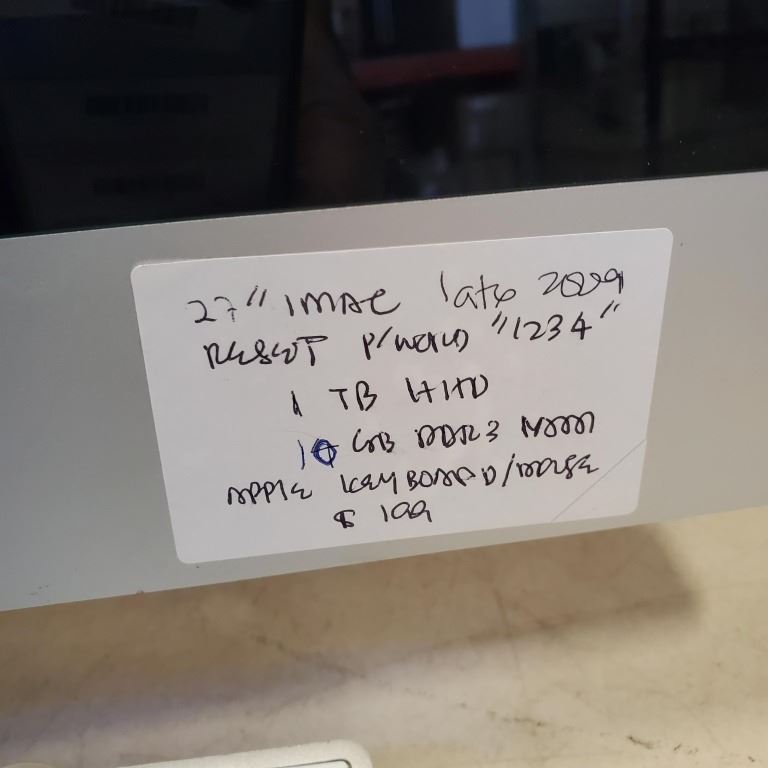 27" IMAC late 2009
RESET P/WORD "1234"
1 TB HHD
10 GB DDR3 MEM
APPLE KEYBOARD/MOUSE
$ 199